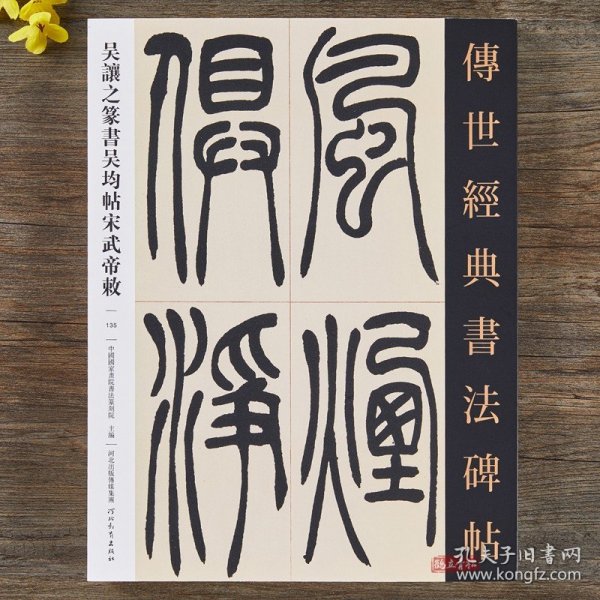 傳世經典書法碑帖
風煙
俱淨
吴讓之篆書吴均帖宋武帝敕
135
中國國家畫院書法篆刻院 主編
河北出版傳媒集團
河北教育出版社
孔夫子旧書网
www.kongfz.com